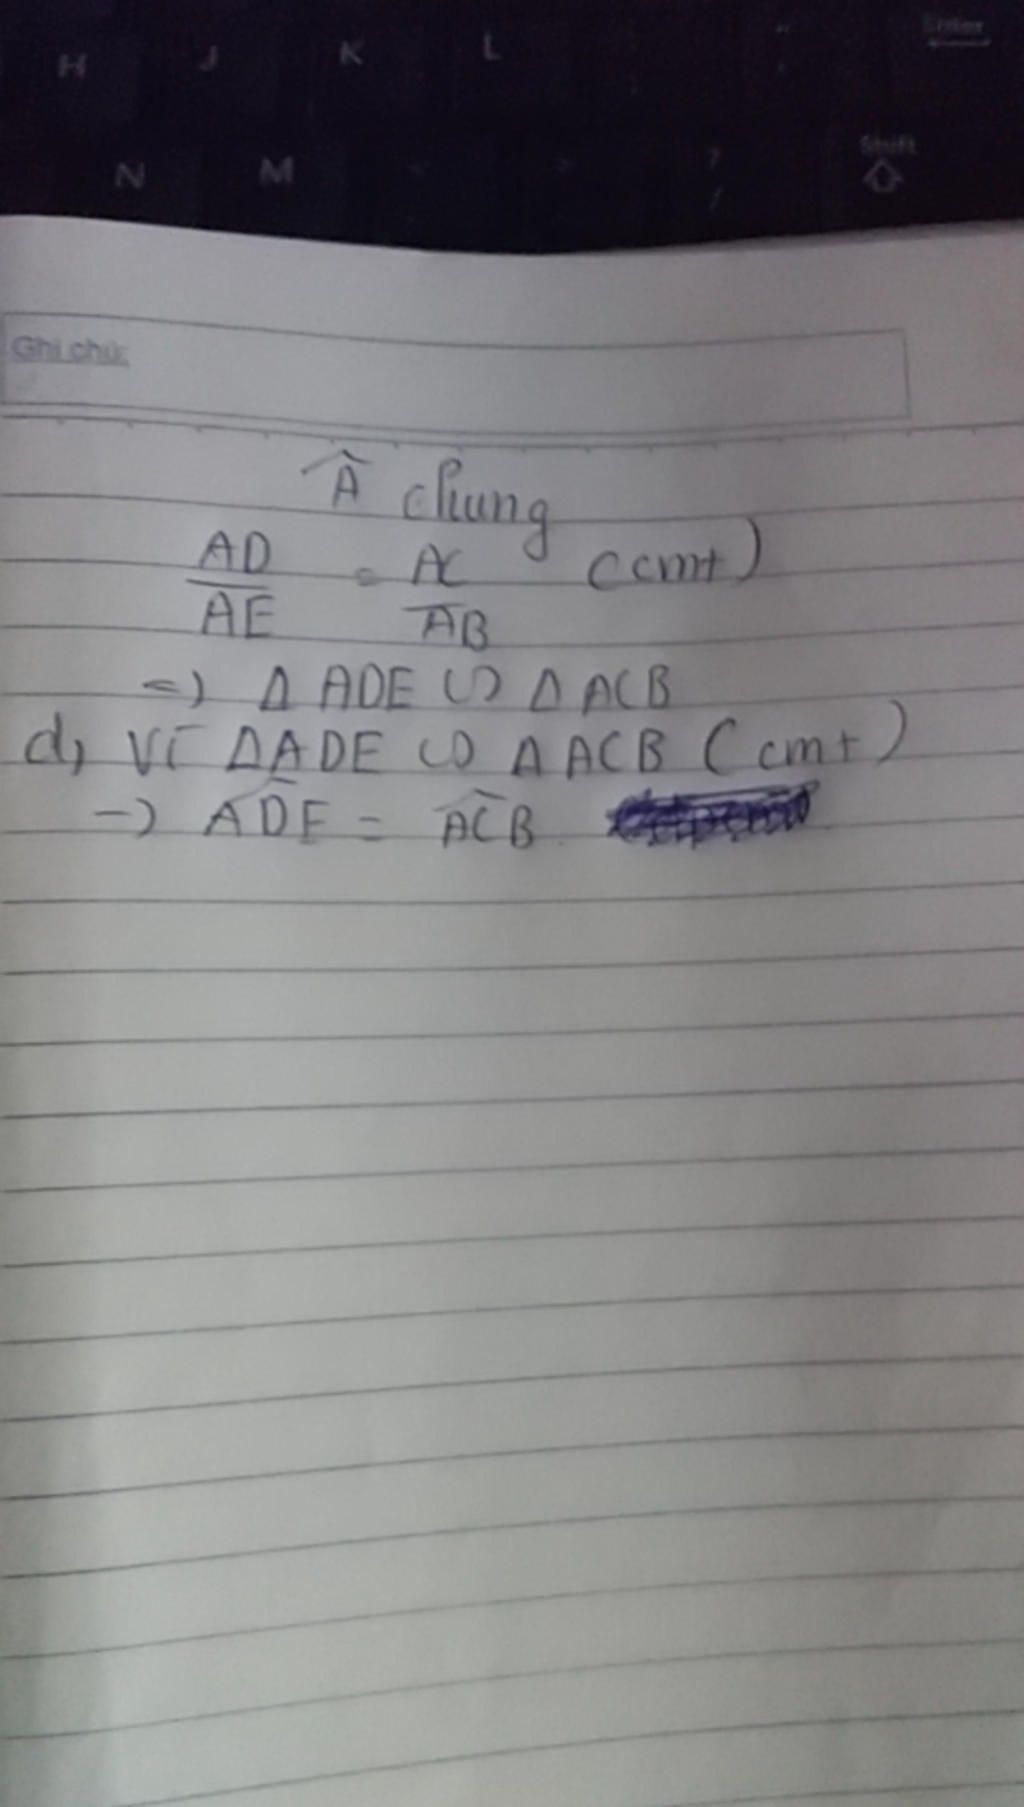 H J K L " Enter
N M < > ? Shift
; /
Ghi chú:
Â chung
AD/AE = AC/AB (cmt)
=) Δ ADE ∽ Δ ACB
d, Vì ΔADE ∽ Δ ACB (cmt)
-) ADE = ACB.